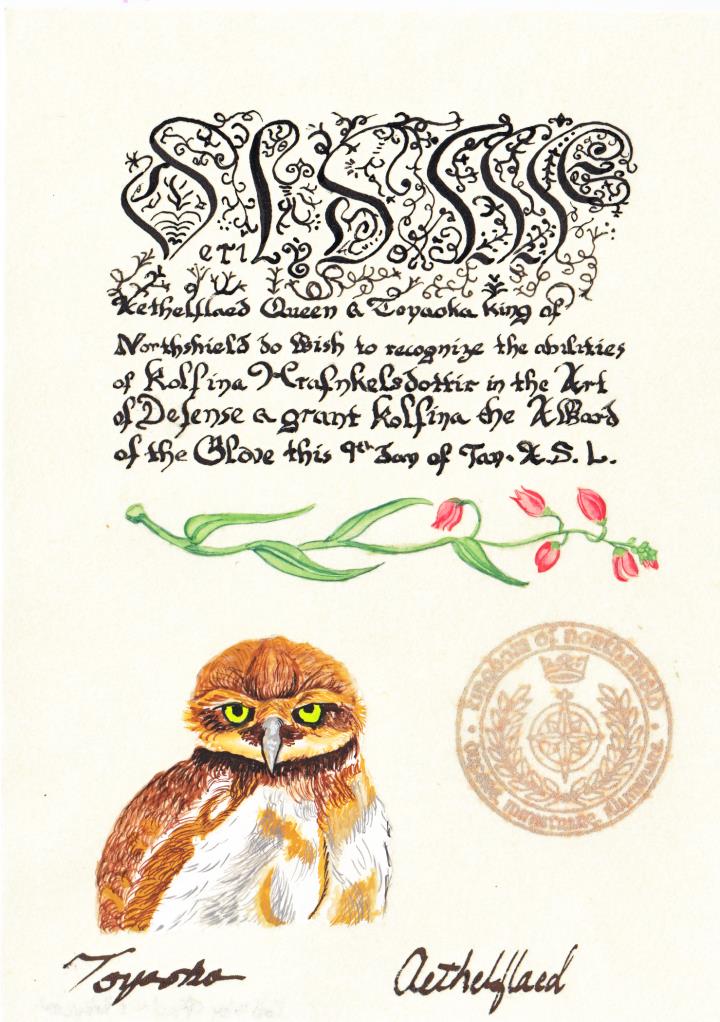 erily
Aethelflaed Queen & Toyaoka King of
Northshield do Wish to recognize the abilities
of Kolfina Hrafnkelsdottir in the Art
of Defense & grant Kolfina the AWard
of the Glove this 9th Day of Jan. A.S. L.
Kingdom of Northshield
Toyaoka
Aethelflaed